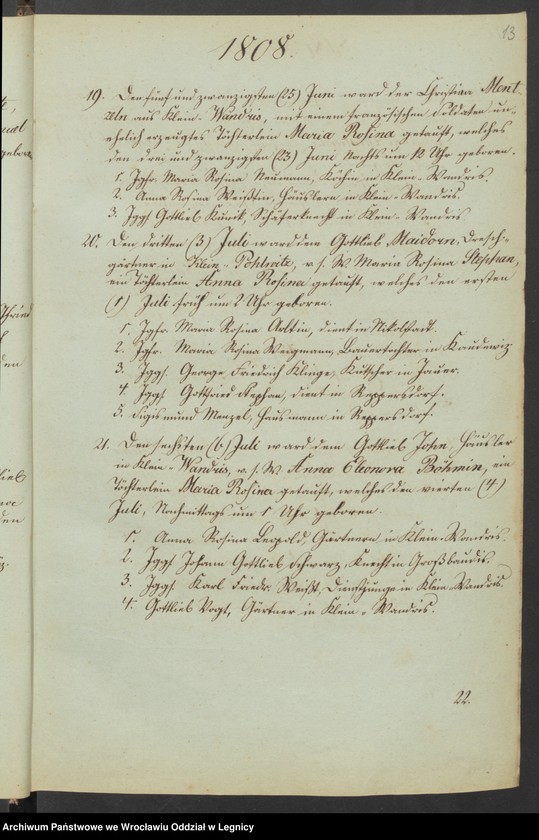 13
1808.
19. Den fünf und zwanzigsten (25) Juni ward der Christian Ment-
zeln aus Klein-Wandris, mit einem französischen Soldaten un-
ehelich erzeugtes Töchterlein Maria Rosina getauft, welches
den drei und zwanzigsten (23) Juni Nachts um 12 Uhr geboren.
1. Jgfr. Maria Rosina Neumann, Köchin in Klein-Wandris
2. Anna Rosina Weißtin, Häuslern in Klein-Wandris.
3. Jggs. Gottlieb, Schäferknecht in Klein-Wandris
20. Den dritten (3) Juli ward dem Gottlieb Maidorn, Dresch-
gärtner in Klein-Pohlwitz, v. s. W. Maria Rosina Stephan,
ein Töchterlein Anna Rosina getauft, welches den ersten
(1) Juli früh um 2 Uhr geboren.
1. Jgfr. Maria Rosina, dient in Nikolstadt.
2. Jgfr. Maria Rosina Weigmann, Bauertochter in Kaudewitz
3. Jggs. George Friedrich Klinge, Kutscher in Jauer.
4. Jggs. Gottfried Stephan, dient in Reppersdorf.
5. Sigismund Menzel, Hausmann in Reppersdorf.
21. Den sechsten (6) Juli ward dem Gottlieb John, Häusler
in Klein-Wandris, v. s. W. Anna Eleonora Böhmin, ein
Töchterlein Maria Rosina getauft, welches den vierten (4)
Juli, Nachmittags um 1 Uhr geboren.
1. Anna Rosina Leopold, Gärtnern in Klein-Wandris.
2. Jggs. Johann Gottlieb Schwarz, Knecht in Großbaudis.
3. Jggs. Karl Friedr. Weißt, Dienstjunge in Klein-Wandris.
4. Gottlieb Vogt, Gärtner in Klein-Wandris.
22.
Archiwum Państwowe we Wrocławiu Oddział w Legnicy